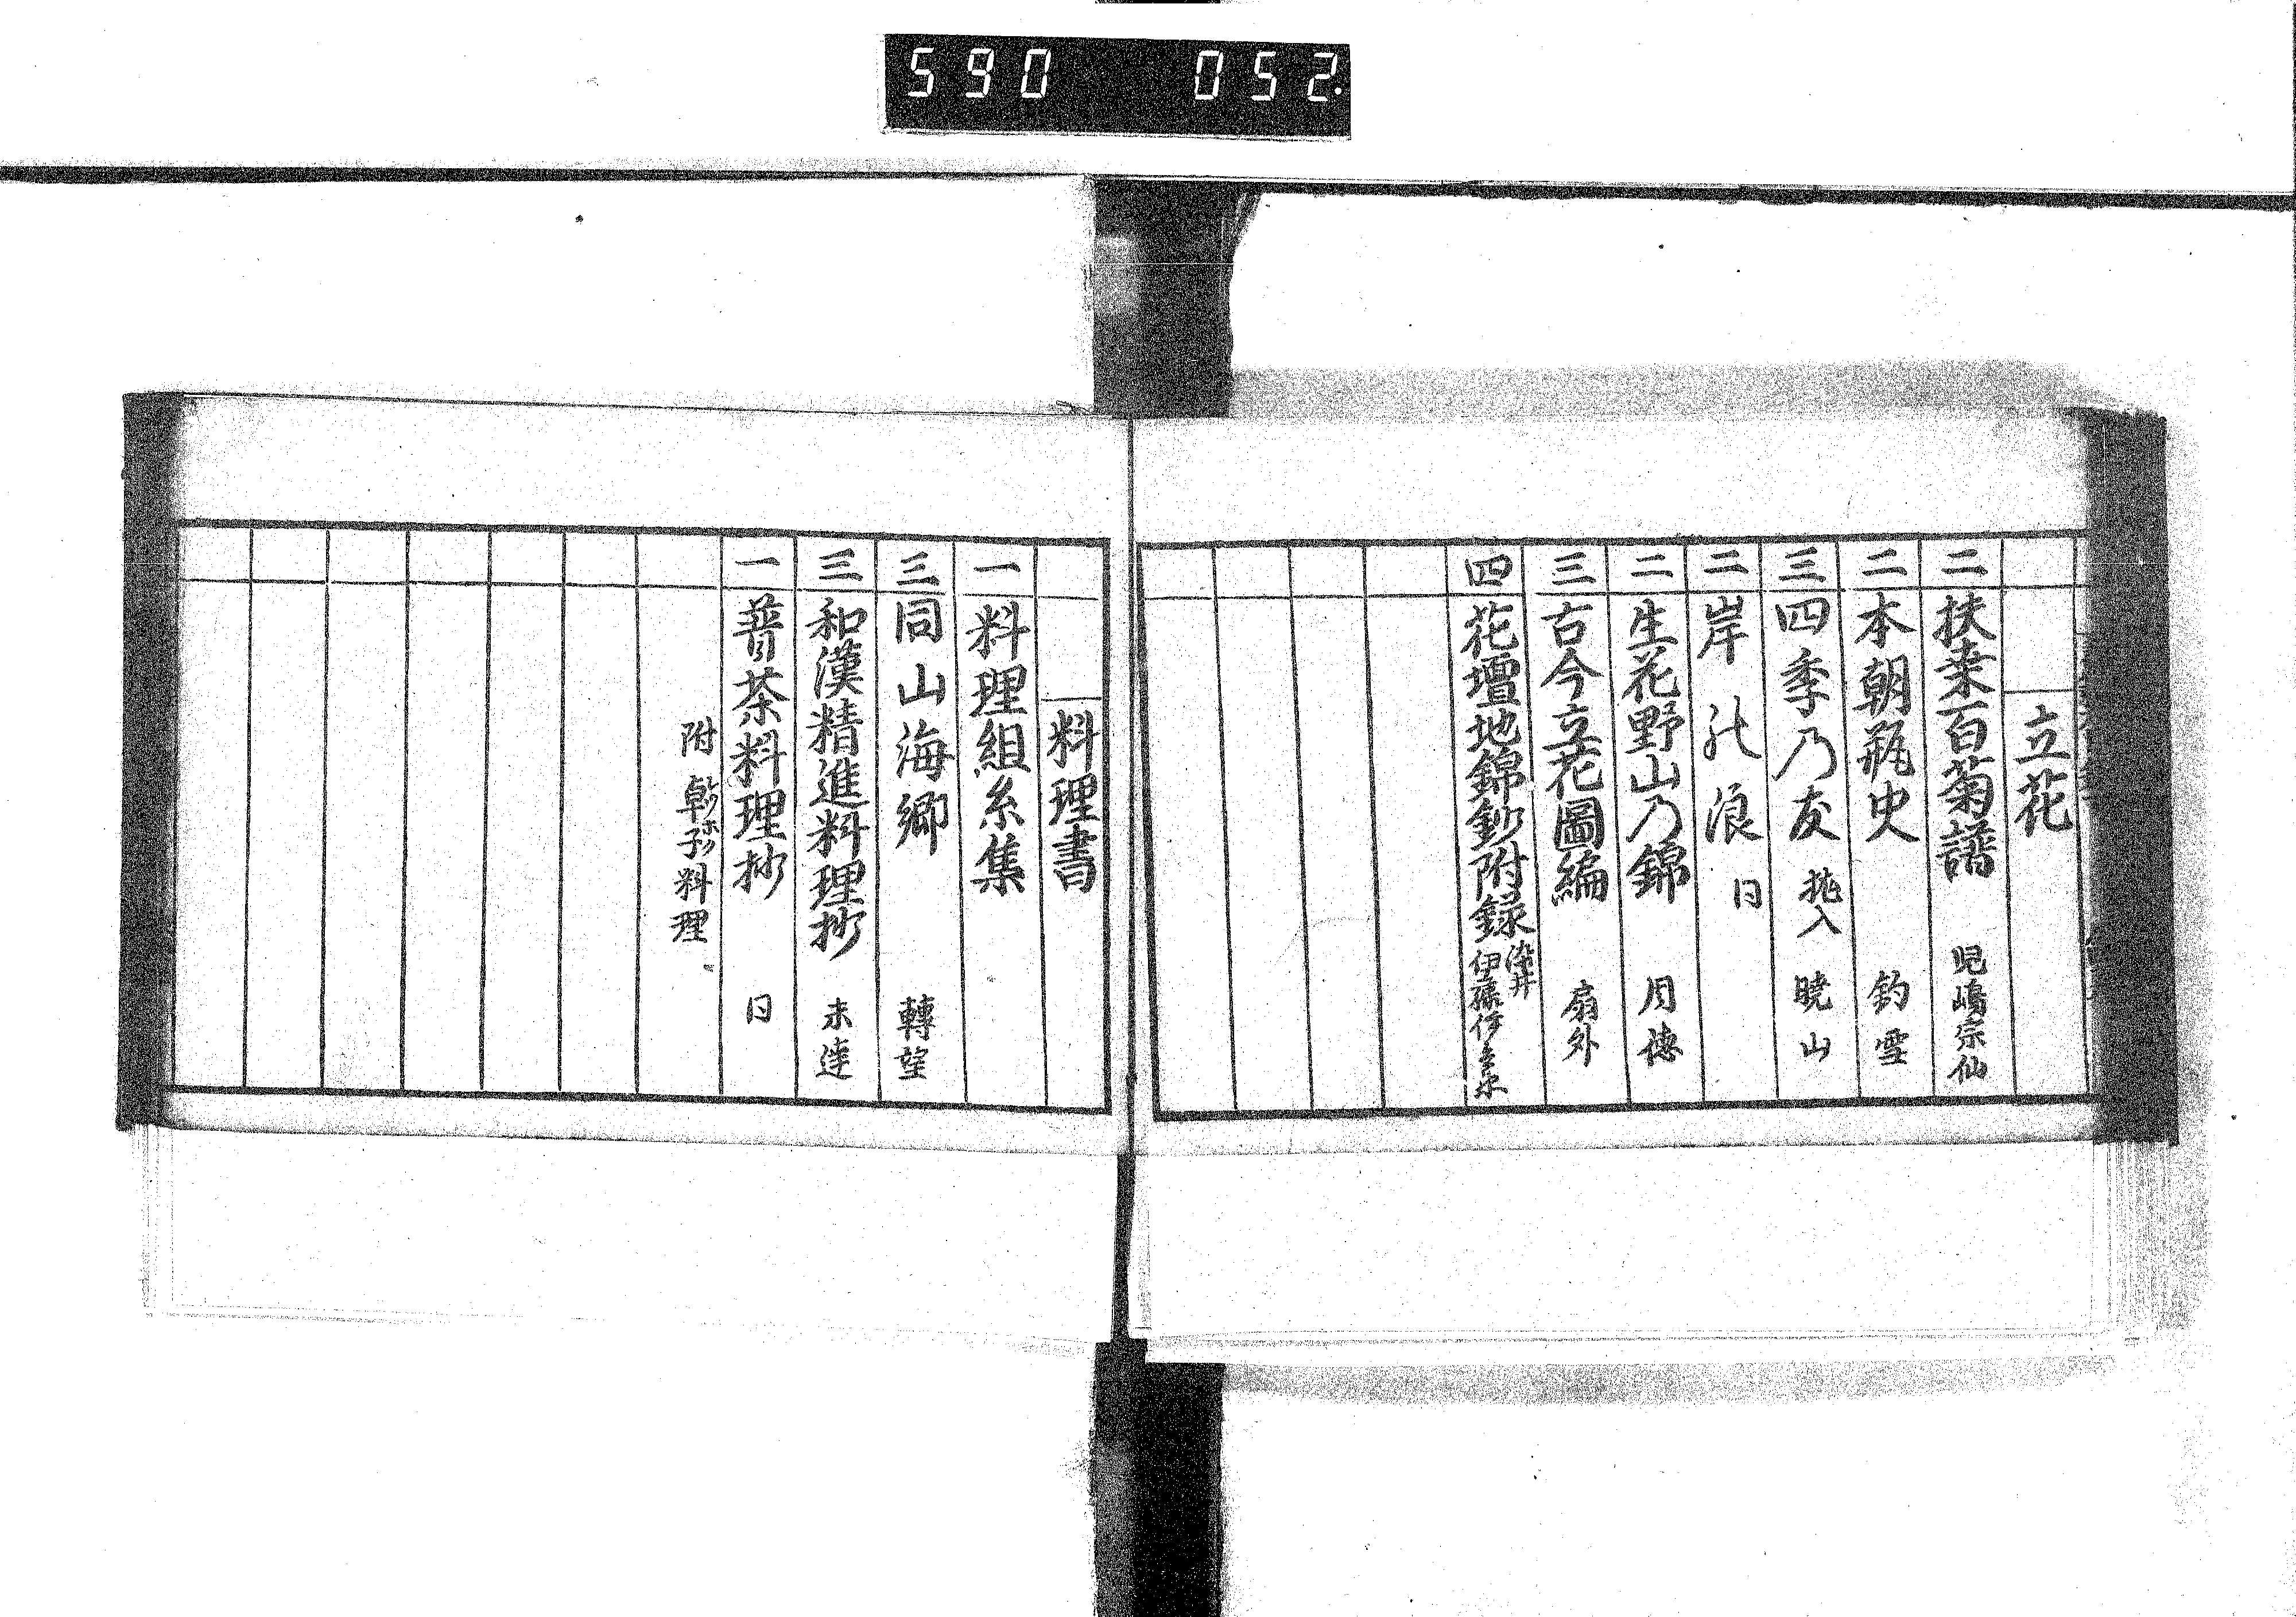 590 052
立花
二 扶桑百菊譜 児嶋宗仙
二 本朝瓶史 釣雪
三 四季乃友 抛入 暁山
三 岸乃浪 同
二 生花野山乃錦 月徳
三 古今立花圖編 扇外
四 花壇地錦鈔附録 染井 伊藤伊
料理書
一 料理組糸集
三 同山海郷 轉望
三 和漢精進料理抄 未達
一 普茶料理抄 同
附 卓子料理